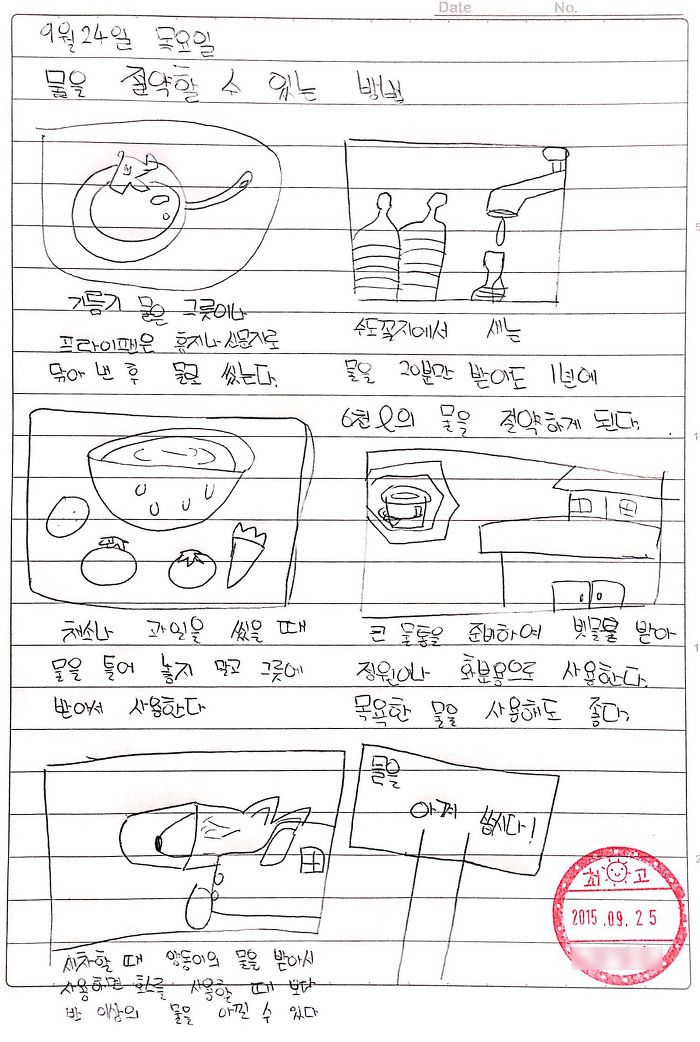 Date No.
9월 24일 목요일
물을 절약할 수 있는 방법
기름기 물은 그릇이나
프라이팬은 휴지나 신문지로
닦아 낸 후 물로 씻는다.
수도꼭지에서 새는
물을 20분만 받아도 1년에
6천ℓ의 물을 절약하게 된다.
채소나 과일을 씻을 때
물을 틀어 놓지 말고 그릇에
받아서 사용한다
큰 물통을 준비하여 빗물을 받아
정원이나 화분용으로 사용한다.
목욕한 물을 사용해도 좋다.
세차할 때 양동이의 물을 받아서
사용하면 호스를 사용할 때 보다
반 이상의 물을 아낄 수 있다
물을
아껴 씁시다!
최고
2015.09.25